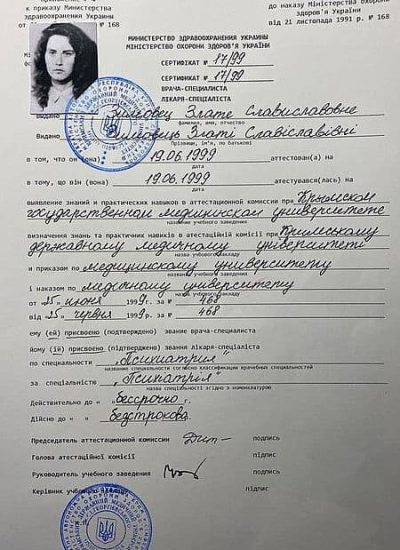 к приказу Министерства
здравоохранения Украины
№ 168
до наказу Міністерства охорони
здоров'я України
від 21 листопада 1991 р. № 168
МИНИСТЕРСТВО ЗДРАВООХРАНЕНИЯ УКРАИНЫ
МІНІСТЕРСТВО ОХОРОНИ ЗДОРОВ'Я УКРАЇНИ
СЕРТИФІКАТ № 17/99
СЕРТИФИКАТ № 17/99
ВРАЧА-СПЕЦИАЛИСТА
ЛІКАРЯ-СПЕЦІАЛІСТА
Злате Славиславовне
фамилия, имя, отчество
Видано Златі Славіславівні
Прізвище, ім'я, по батькові
в том, что он (она) 19.06.1999 аттестован(а) на
в тому, що він (вона) 19.06.1999 атестувався(лась) на
выявление знаний и практических навыков в аттестационной комиссии при Крымском
государственном медицинском университете
название учебного заведения
визначення знань та практичних навичок в атестаційній комісії при Кримському
державному медичному університеті
назва учбового закладу
и приказом по медицинскому университету
название учебного заведения
і наказом по медичному університету
назва учбового закладу
от "25" июня 1999г. № 468
від "25" червня 1999р. № 468
ему (ей) присвоено (подтверждено) звание врача-специалиста
йому (їй) присвоєно (підтверджено) звання лікаря-спеціаліста
по специальности "Психиатрия"
название специальности согласно классификации врачебных специальностей
за спеціальністю "Психіатрія"
назва спеціальності згідно з номенклатурою
Действительно до « бессрочно г.
Дійсно до « безстрокова.
Председатель аттестационной комиссии подпись
Голова атестаційної комісії підпис
Руководитель учебного заведения подпись
Керівник учбового закладу підпис